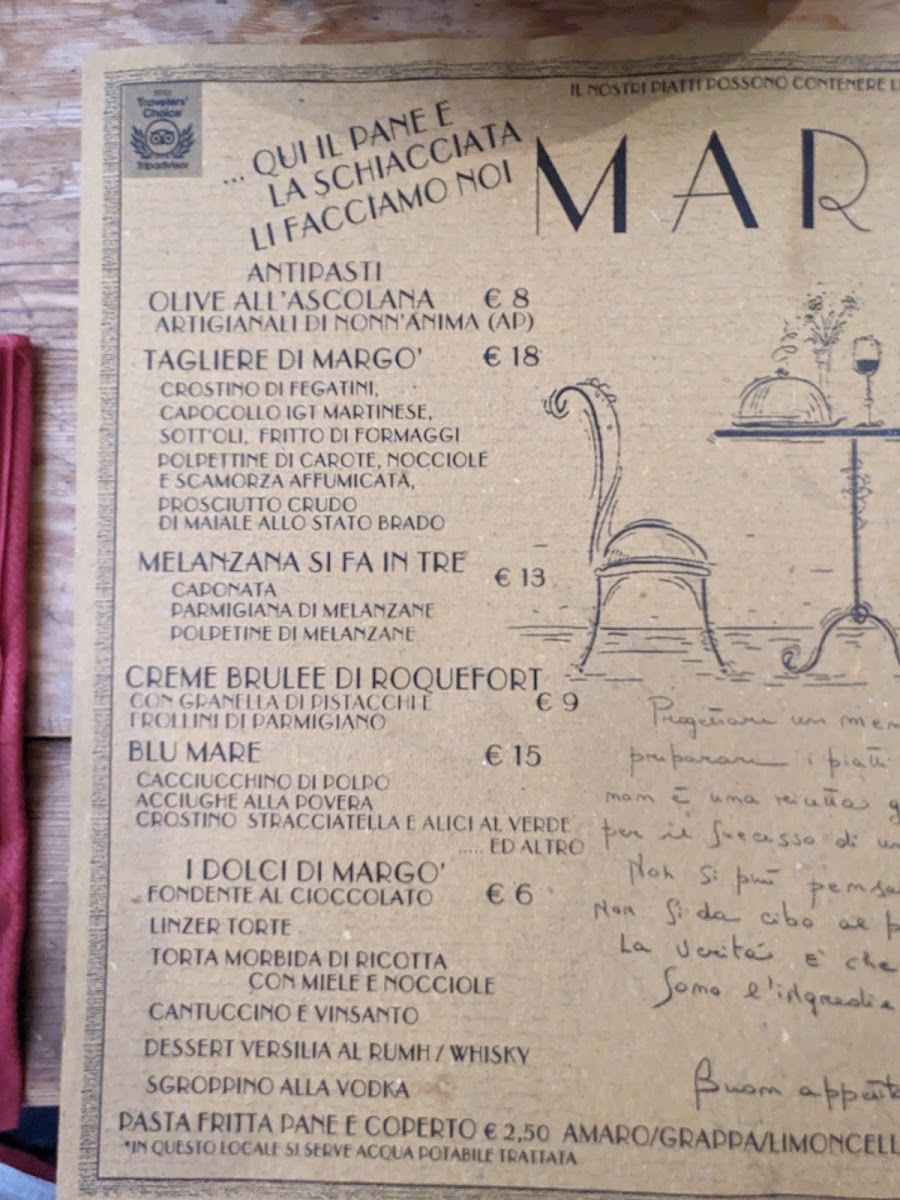 IL NOSTRI PIATTI POSSONO CONTENERE
Travelers'
Choice
Tripadvisor
... QUI IL PANE E
LA SCHIACCIATA
LI FACCIAMO NOI
MAR
ANTIPASTI
OLIVE ALL'ASCOLANA € 8
ARTIGIANALI DI NONN'ANIMA (AP)
TAGLIERE DI MARGO' € 18
CROSTINO DI FEGATINI,
CAPOCOLLO IGT MARTINESE,
SOTT'OLI, FRITTO DI FORMAGGI
POLPETTINE DI CAROTE, NOCCIOLE
E SCAMORZA AFFUMICATA,
PROSCIUTTO CRUDO
DI MAIALE ALLO STATO BRADO
MELANZANA SI FA IN TRE € 13
CAPONATA
PARMIGIANA DI MELANZANE
POLPETINE DI MELANZANE
CREME BRULEE DI ROQUEFORT
CON GRANELLA DI PISTACCHI E € 9
FROLLINI DI PARMIGIANO
BLU MARE € 15
CACCIUCCHINO DI POLPO
ACCIUGHE ALLA POVERA
CROSTINO STRACCIATELLA E ALICI AL VERDE
..... ED ALTRO
I DOLCI DI MARGO'
FONDENTE AL CIOCCOLATO € 6
LINZER TORTE
TORTA MORBIDA DI RICOTTA
CON MIELE E NOCCIOLE
CANTUCCINO E VINSANTO
DESSERT VERSILIA AL RUMH / WHISKY
SGROPPINO ALLA VODKA
Progettare un
preparare i piatti
non è una ricetta
per il successo di
Non si può
Non si da cibo al
La verità è che
Sono
Buon
PASTA FRITTA PANE E COPERTO € 2,50 AMARO/GRAPPA/LIMONCELL
*IN QUESTO LOCALE SI SERVE ACQUA POTABILE TRATTATA